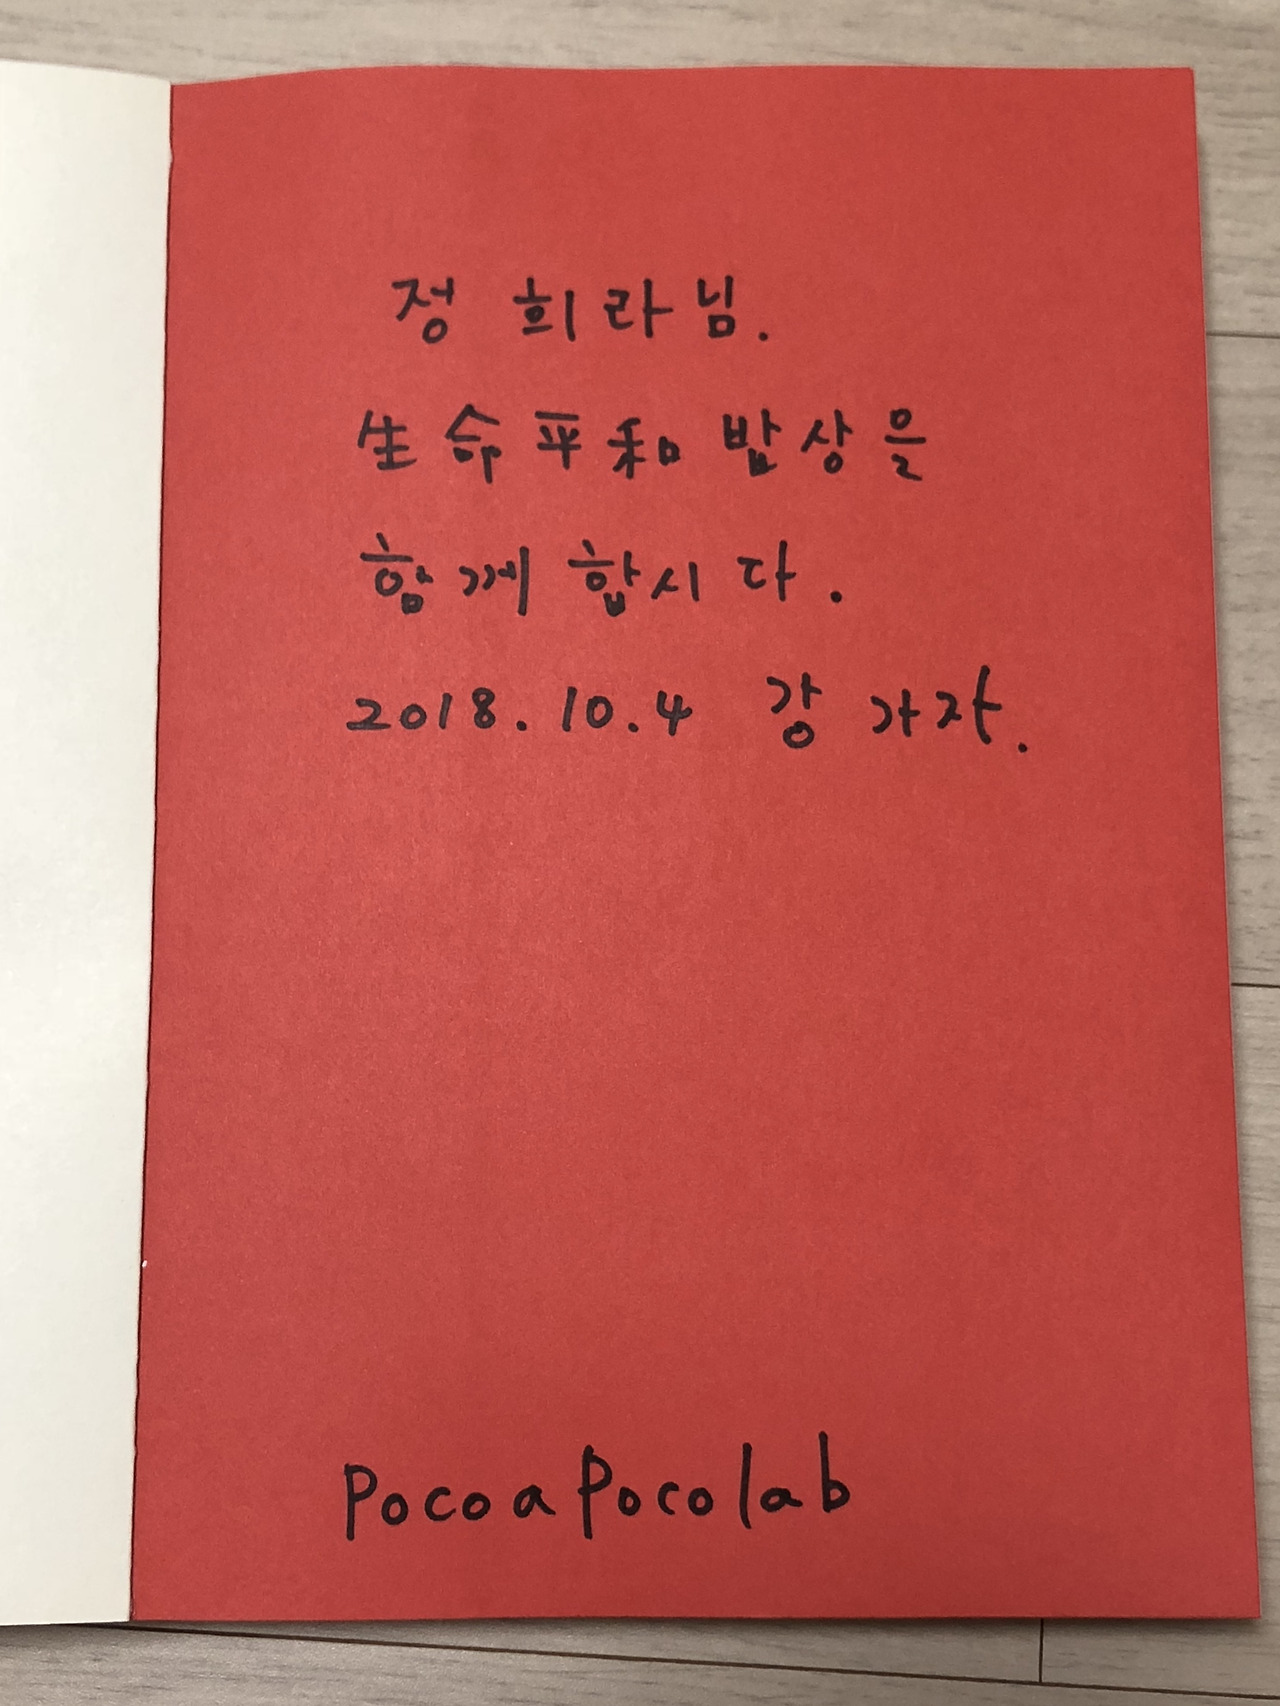 정 희라님.
生命平和 밥상을
함께 합시다.
2018.10.4 강 가자.
Poco a Poco lab